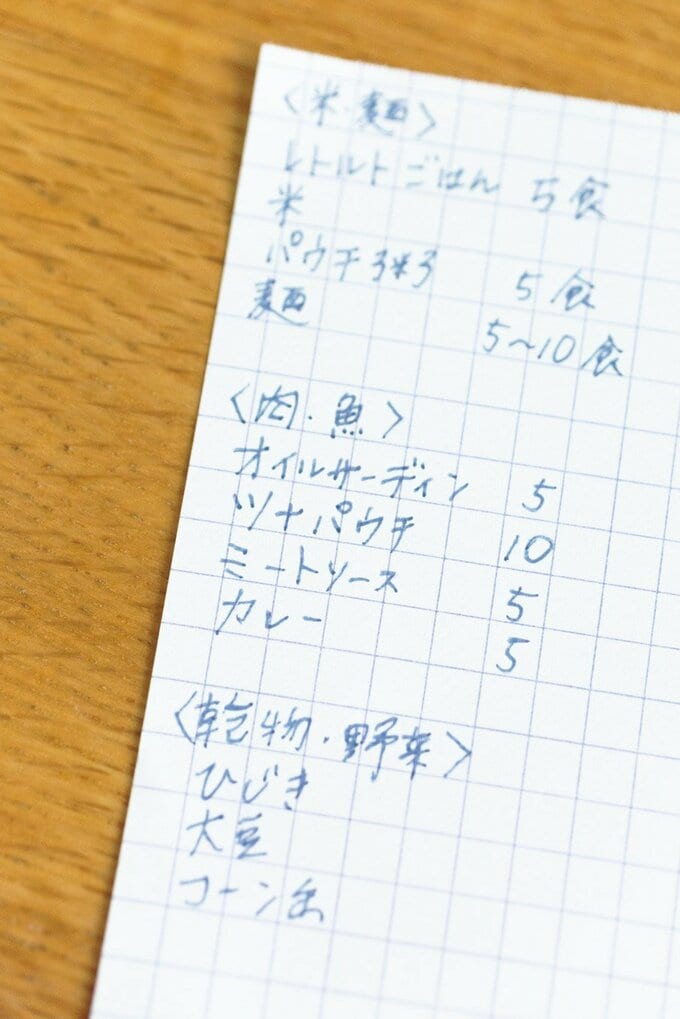 〈米・麺〉
レトルトごはん 5食
米
パウチ 5食
麺 5〜10食
〈肉・魚〉
オイルサーディン 5
ツナパウチ 10
ミートソース 5
カレー 5
〈乾物・野菜〉
ひじき
大豆
コーン缶